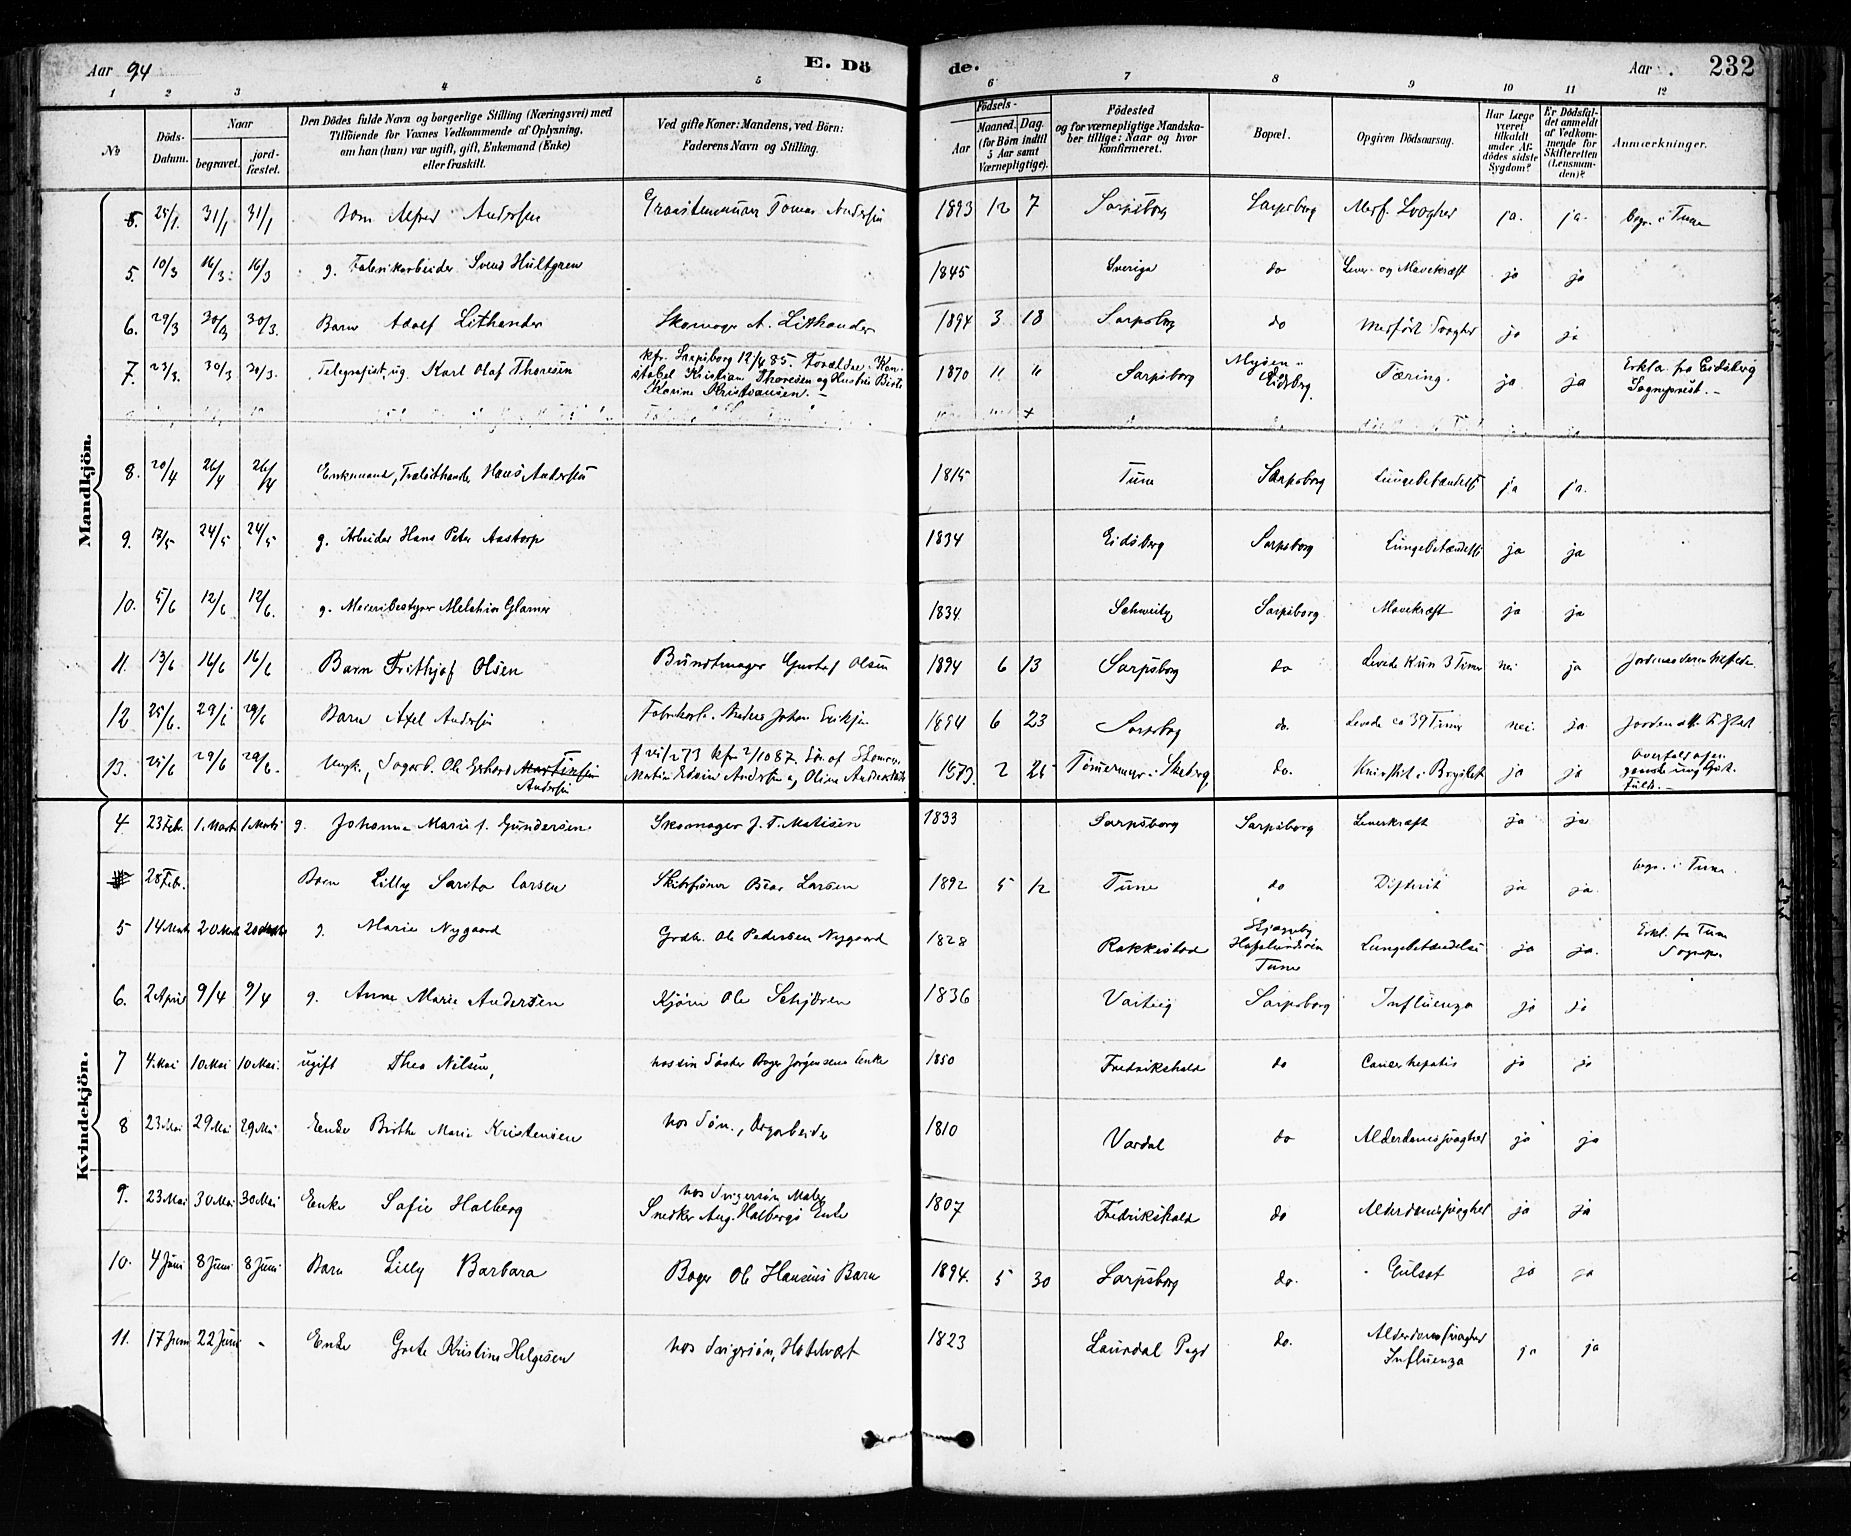 Aar 94
E. Dö
de.
Aar
232
1 2 3 4 5 6 7 8 9 10 11 12
No
Döds-Datum.
Naar begravet. jordfæstet.
Den Dödes fulde Navn og borgerlige Stilling (Næringsvei) med
Tilföiende for Voxnes Vedkommende af Oplysning,
om han (hun) var ugift, gift, Enkemand (Enke)
eller fraskilt.
Ved gifte Koner: Mandens, ved Börn:
Faderens Navn og Stilling.
Födsels-
Aar
Maaned. Dag.
(for Børn indtil 5 Aar samt Værnepligtige).
Födested
og for værnepligtige Mandskaber tillige: Naar og hvor konfirmeret.
Bopæl.
Opgiven Dödsaarsag.
Har Læge været tilkaldt under Afdödes sidste Sygdom?
Er Dödsfaldet anmeldt af Vedkommende for Skifteretten (Lensmanden)?
Anmærkninger.
Mandkjön.
25/1. 31/1 31/1 Tom Alfred Andersen Tomas Andersen 1893 12 7 Sarpsborg Sarpsborg Medf. Svaghed ja. ja. begr. i Tune
5. 10/3 16/3. 16/3 g. Fabrikarbeider Svend Hultgren 1845 Sverige do Lever- og Mavekræft ja ja
6. 29/3 30/3 30/3. Barn Adolf Lithander Skomager A. Lithander 1894 3 18 Sarpsborg do Medfödt Svaghed ja ja
7. 23/3. 30/3 30/3. Telegrafist, ug. Karl Olaf Thoresen kfr. Sarpsborg 12/4 85. Forældre: Konstabel Kristian Thoresen og Hustru Birte Karine Kristiansen. 1870 " " Sarpsborg Mysen i Eidsberg Tæring. ja ja Erklæ. fra Eidsberg Sogneprest.
8. 20/4 26/4 26/4 Enkemand, Hans Andersen 1815 Tune Sarpsborg Lungebetændelse ja ja.
9. 17/5 24/5 24/5 g. Arbeider Hans Peter Aastorp 1834 Eidsberg Sarpsborg Lungebetændelse ja ja
10. 5/6 12/6 12/6. g. Meieribestyrer Melchior Glarner 1834 Schweitz Sarpsborg Mavekræft ja ja
11. 13/6 16/6 16/6 Barn Frithjof Olsen Bundtmager Gustaf Olsen 1894 6 13 Sarpsborg do Levede kun 3 Timer nei ja
12 25/6. 29/6 29/6 Barn Axel Andersen Fabrikarb. Anders Johan Eriksen 1894 6 23 Sarpsborg do. Levede ca 39 Timer nei. ja
13. 25/6 29/6 29/6. Ungk., Sagarb. Ole Gerhard Martinsen Andersen kfr 2/10 87. Søn af Martin Edvin Andersen og Oline Andersdatter 1873. 2 25 i Skeberg, do. ja ja
Kvindekjön.
4 23 Feb. 1. Marts 1. Marts g. Johanne Marie f. Gundersen. Skomager J. T. Matisen 1833 Sarpsborg Sarpsborg Leverkræft ja ja
28 Feb. Barn Lilly Sarita Larsen Larsen 1892 5 12 Tune do Difterit ja ja begr. i Tune
5 14 Marts 20 Marts 20 Marts g. Marie Nygaard Grdbr. Ole Pedersen Nygaard 1828 Rakkestad Hafslundsøen Tune Lungebetændelse ja ja. Erkl. fra Tune Sognepr.
6. 2 April 9/4 9/4 g. Anne Marie Andersen Ole Schjören 1836 Varteig Sarpsborg Influenza ja ja
7 4. Mai 10 Mai 10 Mai. ugift Thea Nilsen, hos sin Söster Bager Jörgensens Enke 1850 Fredrikshald do Cancer hepatis ja ja
8 23 Mai 29 Mai 29 Mai Enke Birthe Marie Kristensen hos Søn., 1810 Vardal do Alderdomssvaghed ja ja
9. 23 Mai 30 Mai 30 Mai Enke Sofie Halberg hos Svigersön Maler Snedker Aug. Halbergs Enke 1807 Fredrikshald do Alderdomssvaghed ja ja
10. 4 Juni 8 Juni 8 Juni Barn Lilly Barbara Bager Ole Hansens Barn 1894. 5 30 Sarpsborg do. Gulsot ja ja
11. 17 Juni 22 Juni - Enke Grete Kristine Helgesen hos Svigersön, Hotelvært 1823 Laurdal Pegd do. Alderdomssvaghed Influenza ja ja